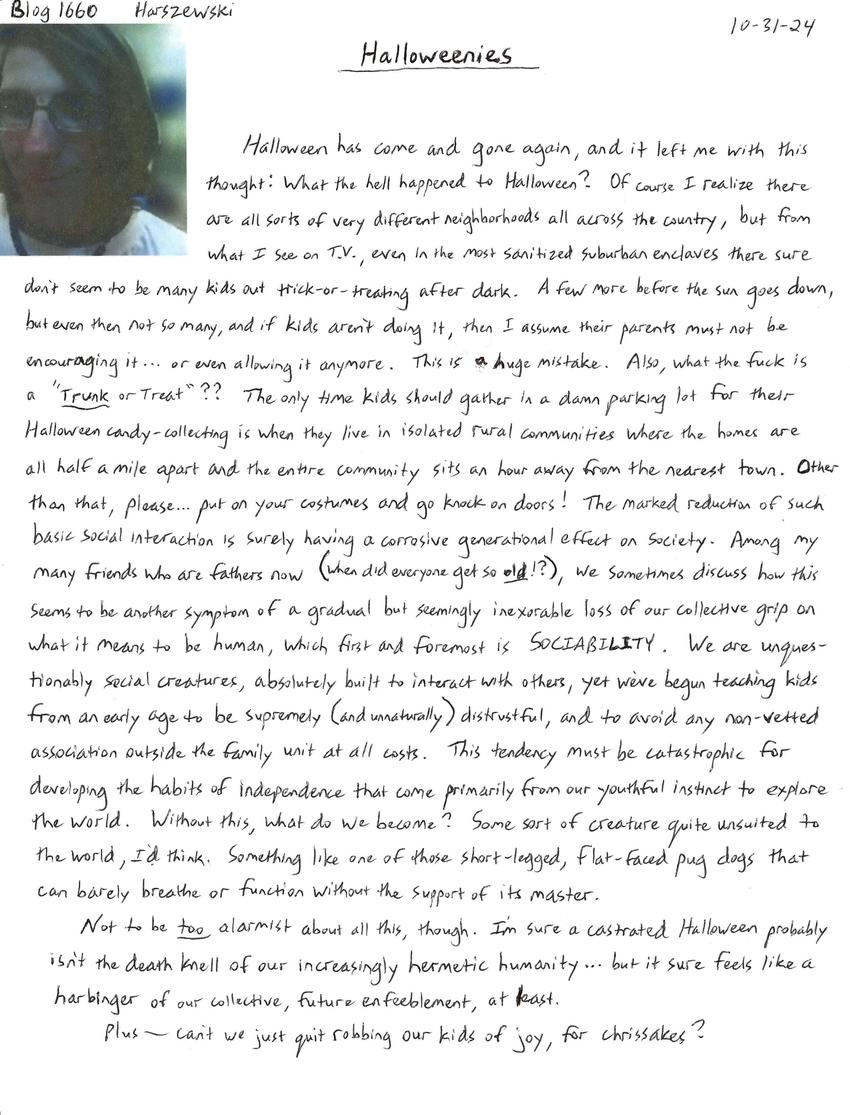 Blog 1660 Harszewski
10-31-24
Halloweenies
Halloween has come and gone again, and it left me with this
thought: What the hell happened to Halloween? Of course I realize there
are all sorts of very different neighborhoods all across the country, but from
what I see on T.V., even in the most sanitized suburban enclaves there sure
don't seem to be many kids out trick-or-treating after dark. A few more before the sun goes down,
but even then not so many, and if kids aren't doing it, then I assume their parents must not be
encouraging it... or even allowing it anymore. This is a huge mistake. Also, what the fuck is
a "Trunk or Treat"?? The only time kids should gather in a damn parking lot for their
Halloween candy-collecting is when they live in isolated rural communities where the homes are
all half a mile apart and the entire community sits an hour away from the nearest town. Other
than that, please... put on your costumes and go knock on doors! The marked reduction of such
basic social interaction is surely having a corrosive generational effect on society. Among my
many friends who are fathers now (when did everyone get so old!?), we sometimes discuss how this
seems to be another symptom of a gradual but seemingly inexorable loss of our collective grip on
what it means to be human, which first and foremost is SOCIABILITY. We are unques-
tionably social creatures, absolutely built to interact with others, yet we've begun teaching kids
from an early age to be supremely (and unnaturally) distrustful, and to avoid any non-vetted
association outside the family unit at all costs. This tendency must be catastrophic for
developing the habits of independence that come primarily from our youthful instinct to explore
the world. Without this, what do we become? Some sort of creature quite unsuited to
the world, I'd think. Something like one of those short-legged, flat-faced pug dogs that
can barely breathe or function without the support of its master.
Not to be too alarmist about all this, though. I'm sure a castrated Halloween probably
isn't the death knell of our increasingly hermetic humanity... but it sure feels like a
harbinger of our collective, future enfeeblement, at least.
Plus — can't we just quit robbing our kids of joy, for chrissakes?